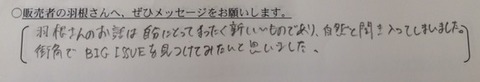 ○販売者の羽根さんへ、ぜひメッセージをお願いします。
羽根さんのお話は自分にとってまったく新しいものであり、自然と聞き入ってしまいました。
街角で BIG ISSUE を見つけてみたいと思いました。